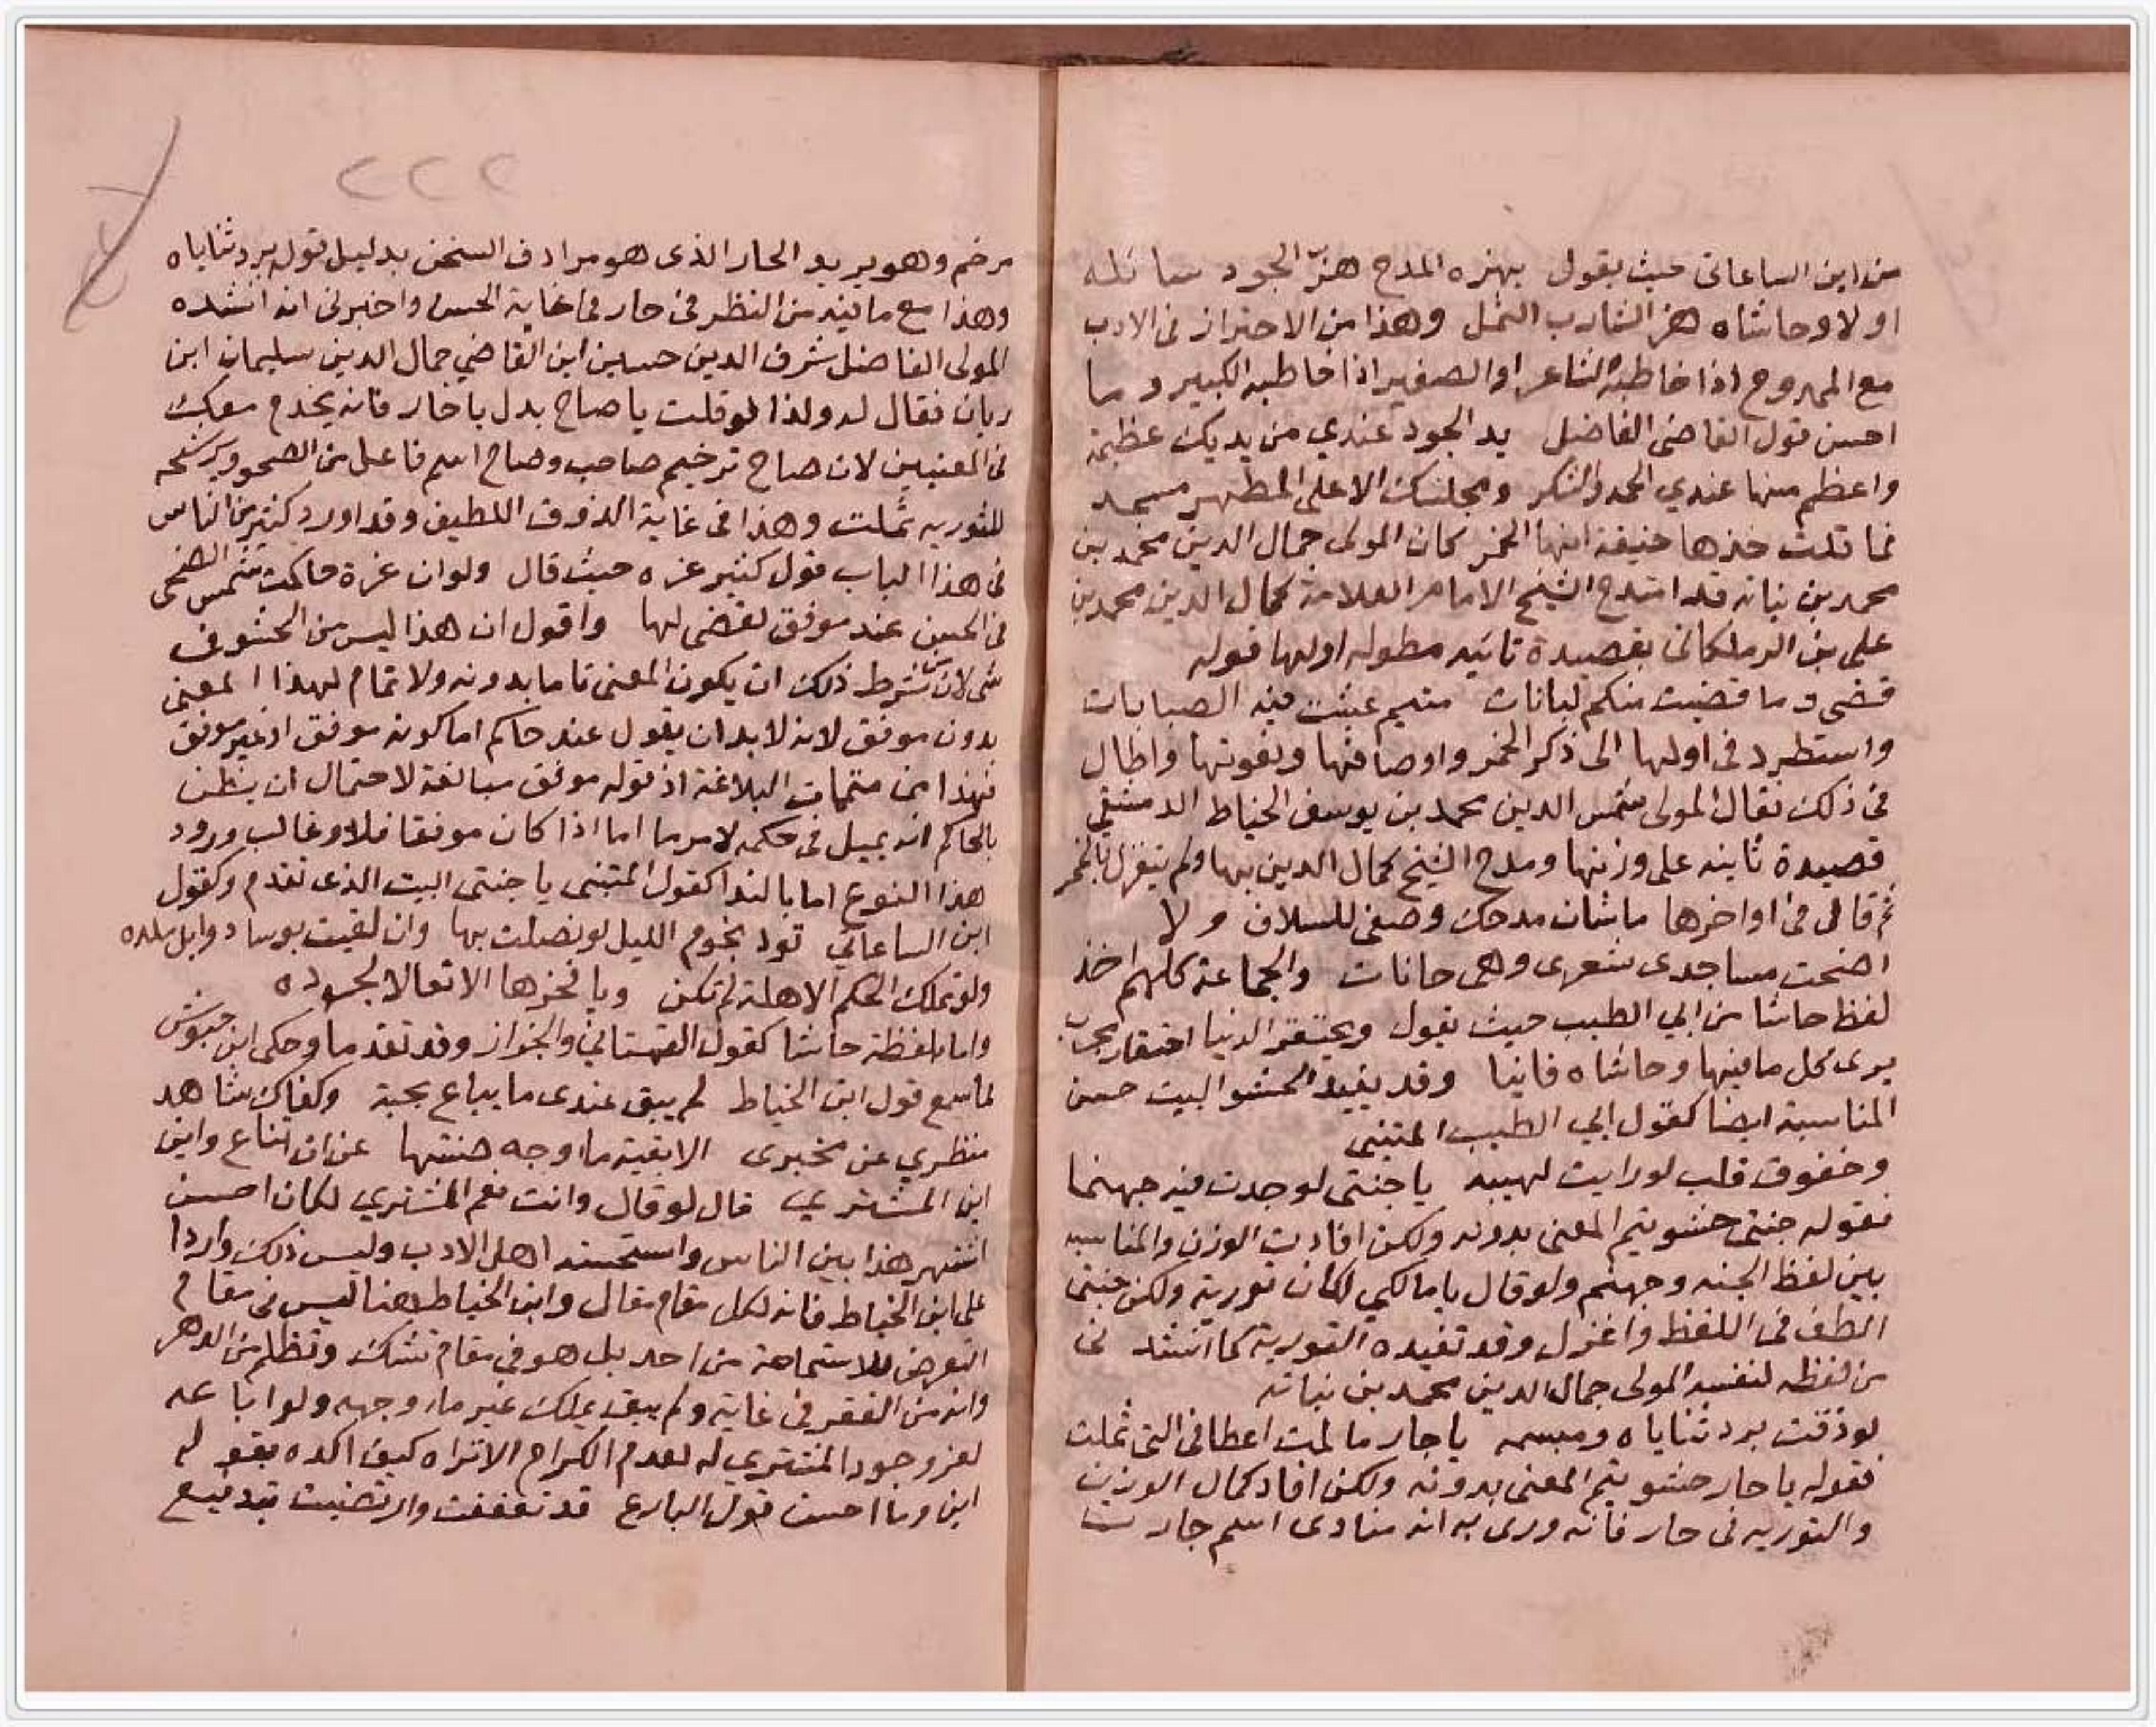 من ابن الساعاتي حيث يقول يهزه المدح هزّ الجود سائله
اولا وحاشاه هز الشارب الثمل وهذا من الاحتراز في الادب
مع الممدوح اذا خاطبه الشاعر او الصغير اذا خاطبه الكبير وما
احسن قول القاضي الفاضل يد الجود عندي من يديك عظيمة
واعظم منها عندي الحمد والشكر ومجلسك الاعلى المطهر مسجد
فما قلت خذها خيفة انها الخمر كان المولى جمال الدين محمد بن
محمد بن نباته قد امتدح الشيخ الامام العلامة كمال الدين محمد بن
علي بن الزملكاني بقصيدة تائيه مطوله اولها قوله
قضى وما قضيت منكم لبانات متيم عبثت فيه الصبابات
واستطرد في اولها الى ذكر الخمر واوصافها ونعوتها واطال
في ذلك فقال المولى شمس الدين محمد بن يوسف الخياط الدمشقي
قصيدة ثانيه على وزنها ومدح الشيخ كمال الدين بها ولم يتغزل بالخمر
ثم قال في اواخرها ماشان مدحك وصفي للسلاف ولا
اضحت مساجدى بشعرى وهى حانات والجماعة كلهم اخذ
لفظ حاشا من ابي الطيب حيث يقول ويحتقر الدنيا احتقار مجرب
يرى كل ما فيها وحاشاه فانيا وقد يفيد الحشو البيت حسن
المناسبة ايضا كقول ابي الطيب المتنبى
وخفوق قلب لو رايت لهيبه يا جنتي لوجدت فيه جهنما
فقوله جنتي حشو يتم المعنى بدونه ولكن افادت الوزن والمناسبه
بين لفظ الجنه وجهنم ولو قال يا مالكي لكان تورية ولكن جنتى
الطف في اللفظ واغزل وقد تفيده التورية كما انشد نى
من لفظه لنفسه المولى جمال الدين محمد بن نباته
لو ذقت برد ثناياه ومبسمه يا حار ما لمت اعطافي التى ثملت
فقوله يا حار حشو يتم المعنى بدونه ولكن افاد كمال الوزن
والتوريه في حار فانه ورى به انه منادى اسم حارث
٢٢٢
مرخم وهو يريد الحار الذى هو مرادف السخن بدليل قوله برد ثناياه
وهذا مع ما فيه من النظر في حار في غاية الحسن واخبرنى انه انشده
المولى الفاضل شرف الدين حسين ابن القاضي جمال الدين سليمان ابن
ريان فقال له ولذا لو قلت يا صاح بدل يا حار فانه يخدم معك
في المعنيين لان صاح ترخيم صاحب وصاح اسم فاعل من الصحو ويرشحه
للتوريه ثملت وهذا في غاية الذوق اللطيف وقد اورد كثير من الناس
في هذا الباب قول كثير عزه حيث قال ولو ان عزة حاكمت شمس الضحى
في الحسن عند موفق لقضى لها واقول ان هذا ليس من الحشو في
شى لان شرط ذلك ان يكون المعنى تاما بدونه ولا تمام لهذا المعنى
بدون موفق لانه لا بد ان يقول عند حاكم اما كونه موفق او غير موفق
فهذا من متممات البلاغة اذ قوله موفق مبالغة لاحتمال ان يظن
بالحاكم انه يميل في حكمه لامر ما اما اذا كان موفقا فلا وغالب ورود
هذا النوع اما بالندا كقول المتنبى يا جنتى البيت الذى تقدم وكقول
ابن الساعاتي تود نجوم الليل لو نصلت بها وان لقيت بوسا دوابل ملده
ولو تملك الحكم الاهلة لم تكن ويا فخزها الا نعالا لجرده
واما بلفظة حاشا كقول القهستاني والجزار وقد تقدما وحكى ابن حيوش
لما سمع قول ابن الخياط لم يبق عندى ما يباع بحبة وكفاك شاهد
منظري عن مخبرى الا بقية ما اوجه صنتها عن ان تباع واين
اين المشترى قال لو قال وانت نعم المشتري لكان احسن
اشتهر هذا بين الناس واستحسنه اهل الادب وليس ذلك واردا
على ابن الخياط فانه لكل مقام مقال وابن الخياط هنا ليس في مقام
التعرض للاستماحة من احد بل هو في مقام تشك وتظلم من الدهر
وانه من الفقر في غاية ولم يبق يملك غير ما وجهه ولو اباعه
لعز وجود المشترى له لعدم الكرام الا تراه كيف اكده بقوله
اين وما احسن قول البارع قد تعففت وارتضيت بتدفيع